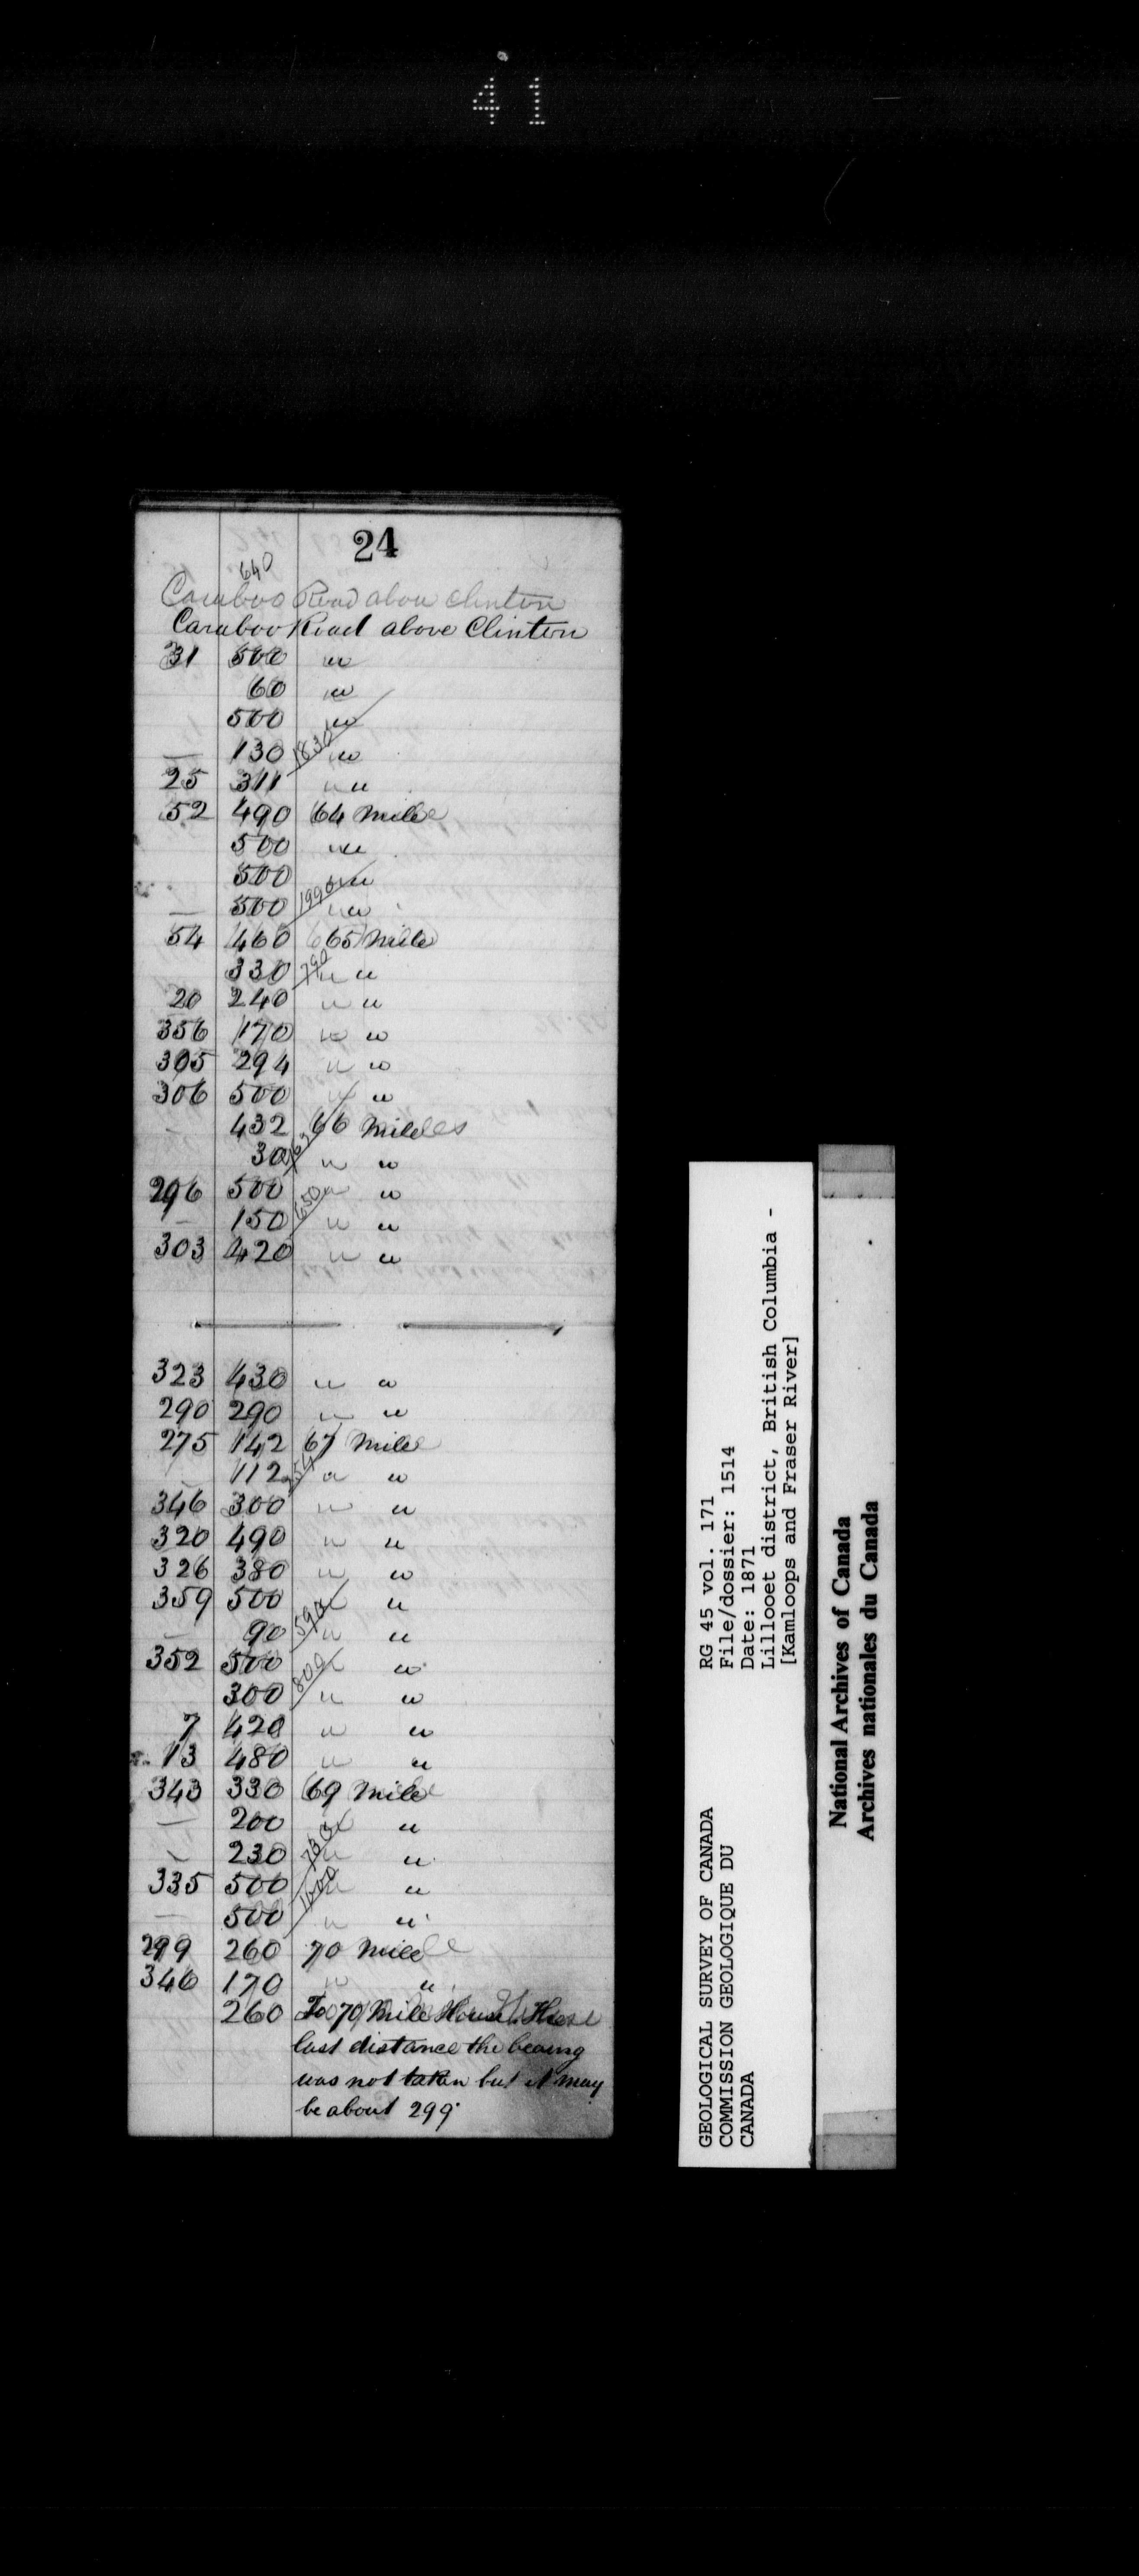 41
24
640
Caraboo Road above Clinton
Caraboo Road above Clinton
31 500 "
60 "
500 "
— 130 1830 "
25 311 " "
52 490 64 Mile
500 "
500 "
— 500 1990 " "
54 460 65 Mile
330 790 " "
20 240 " "
356 170 " "
305 294 " "
306 500 " "
432 66 Miles
30 " "
296 500 " "
— 150 650 " "
303 420 " "
323 430 " "
290 290 " "
275 142 67 Mile
— 112 254 " "
346 300 " "
320 490 " "
326 380 " "
359 500 " "
— 90 590 " "
352 500 " "
300 800 " "
7 420 " "
13 480 " "
343 330 69 Mile
— 200 " "
— 230 " "
335 500 " "
— 500 1000 " "
299 260 70 Mile
346 170 " "
260 To 70 Mile House. These
last distance the bearing
was not taken but it may
be about 299°
RG 45 vol. 171
File/dossier: 1514
Date: 1871
Lillooet district, British Columbia -
[Kamloops and Fraser River]
GEOLOGICAL SURVEY OF CANADA
COMMISSION GEOLOGIQUE DU
CANADA
National Archives of Canada
Archives nationales du Canada